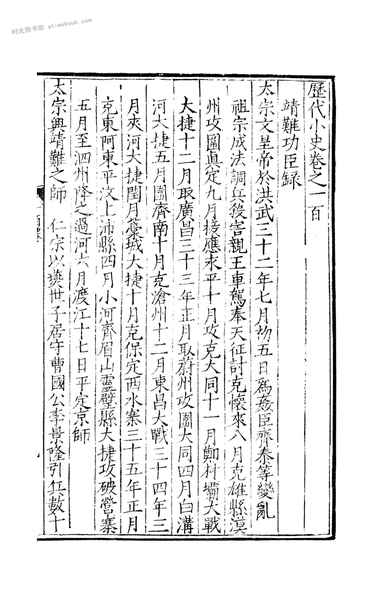 歷代小史卷之一百
靖難功臣録
太宗文皇帝於洪武三十二年七月初五日為姦臣齊泰等變亂
祖宗成法調兵後害親王車駕奉天征討克懷來八月克雄縣漠
州攻圍真定九月接應永平十月攻克大同十一月鄭村壩大戰
大捷十二月取廣昌三十三年正月取蔚州攻圍大同四月白溝
河大捷五月圍濟南十月克滄州十二月東昌大戰三十四年三
月夾河大捷閏月藁城大捷十月克保定西水寨三十五年正月
克東阿東平汶上沛縣四月小河齊眉山靈壁縣大捷攻破營寨
五月至泗州降之過河六月度江十七日平定京師
太宗興靖難之師 仁宗以燕世子居守曹國公李景隆引兵數十